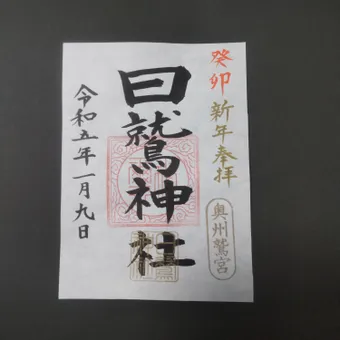 癸卯
新年奉拝
奥州鷲宮
曰鷲神社
令和五年一月九日